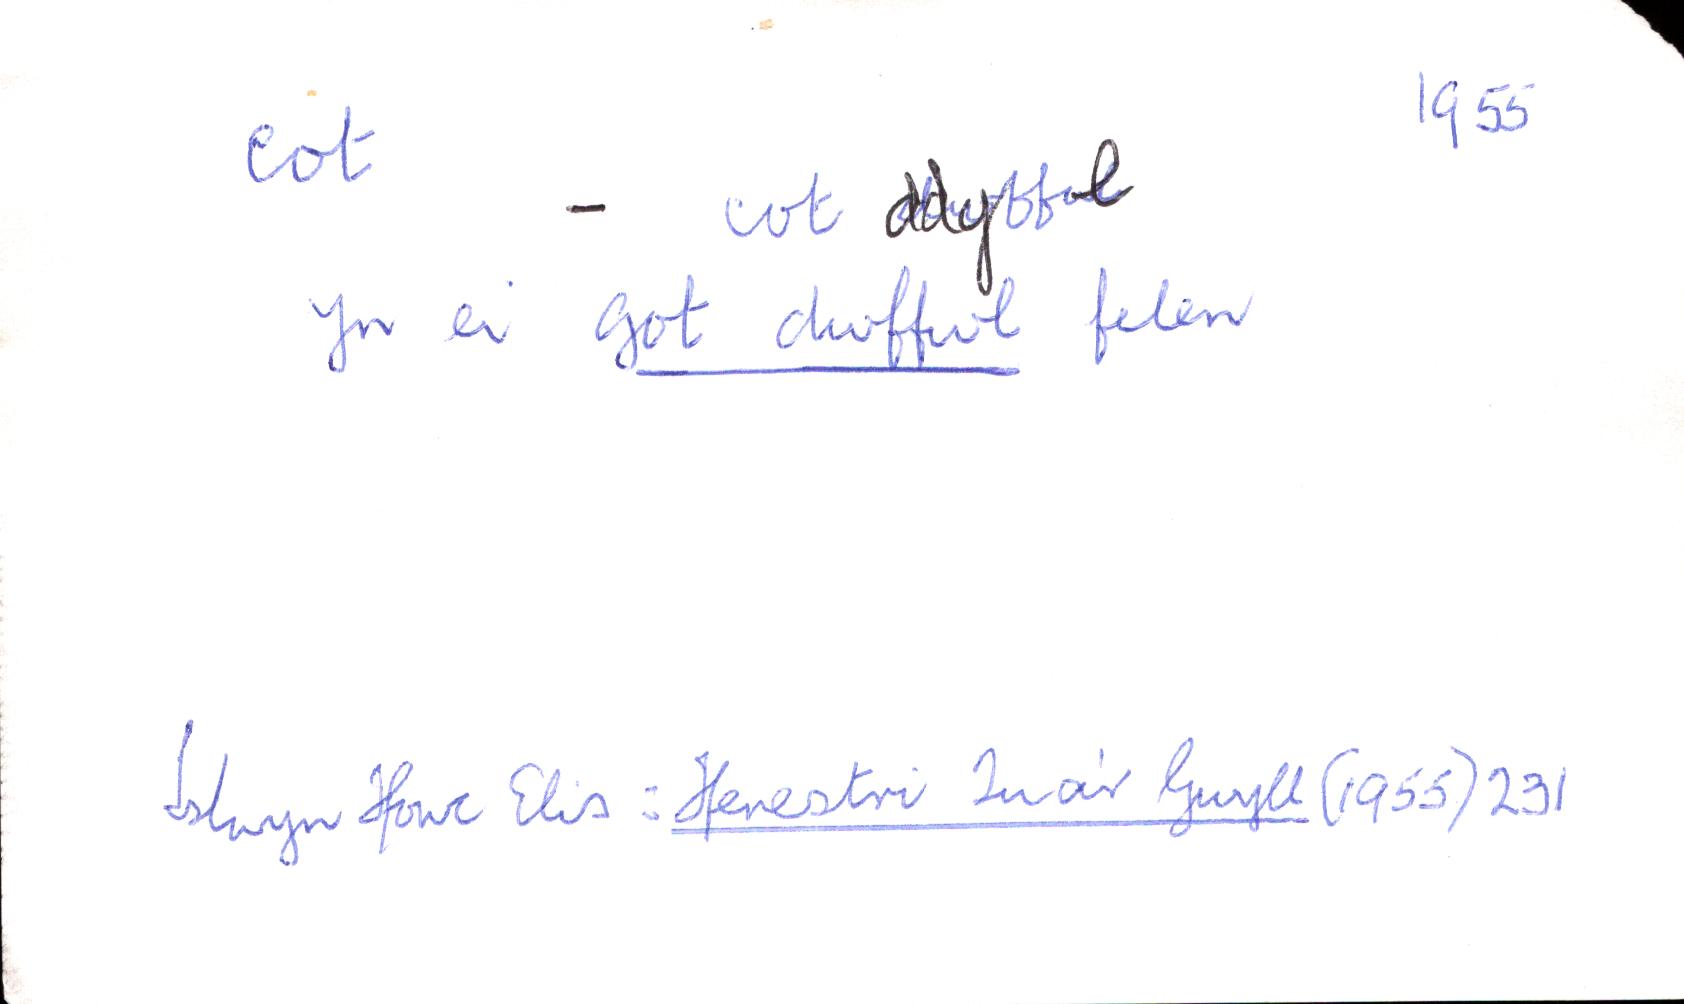 cot 1955
– cot ddyffwl
Yn ei got dwffwl felen
Islwyn Ffowc Elis : Ffenestri Tua'r Gwyll (1955) 231